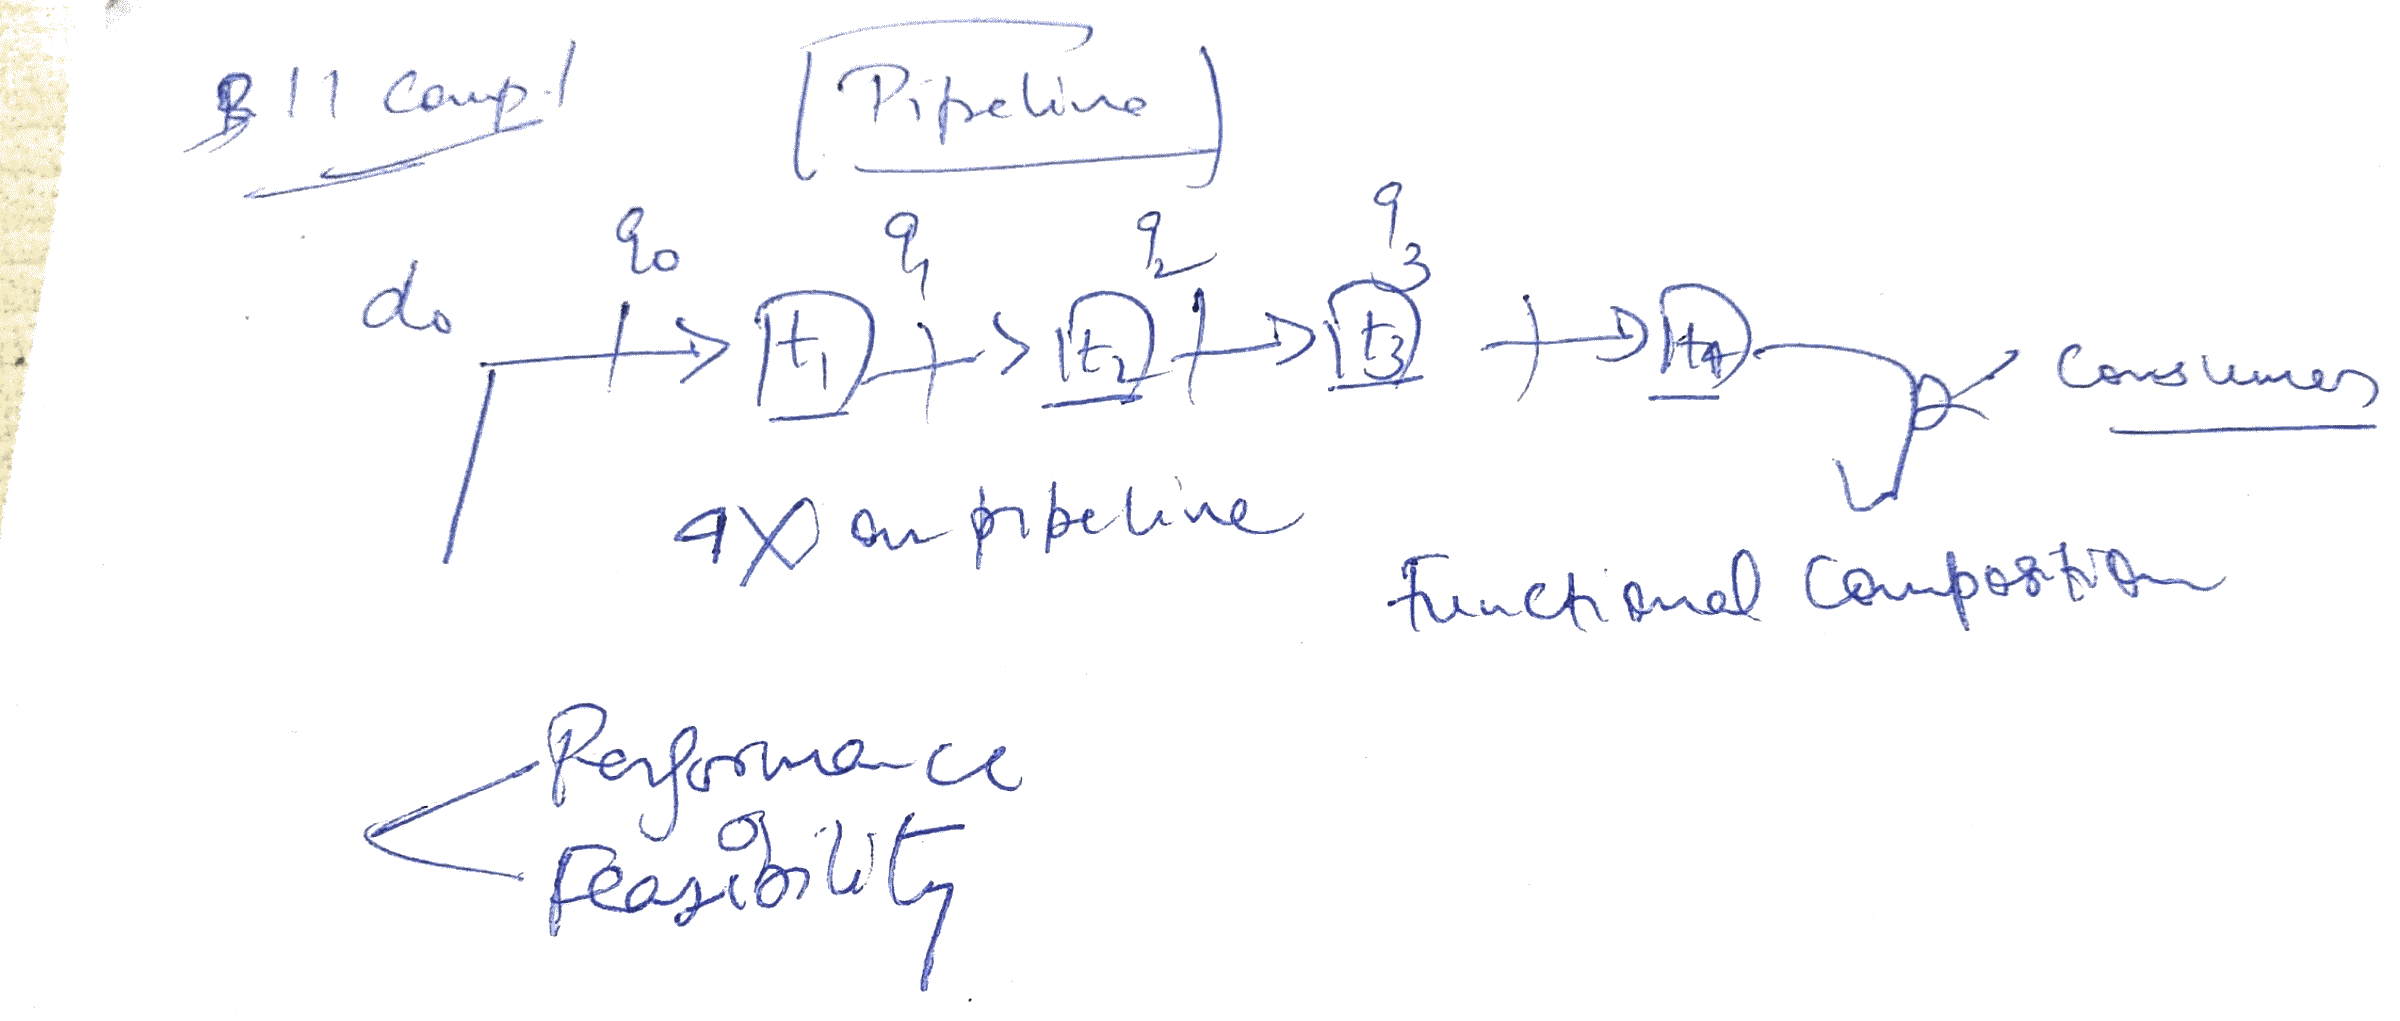 || Comp | Pipeline
q0 q1 q2 q3
d0 t1 t2 t3 t4 Consumer
4X on pipeline
Functional Composition
Performance
Feasibility